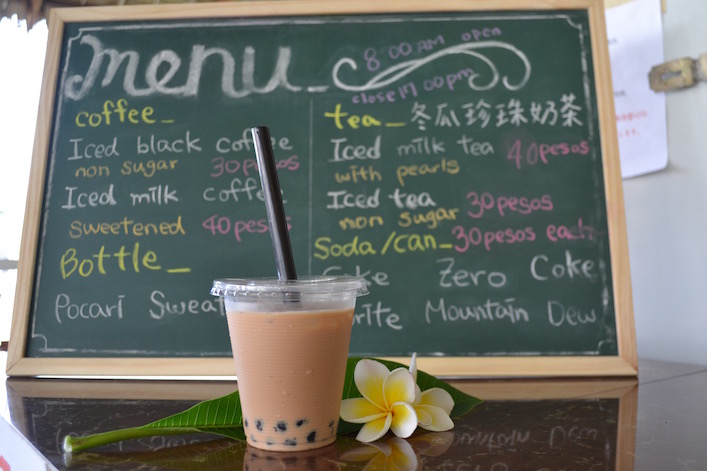 menu
8:00 AM open
close 17:00pm
coffee
Iced black coffee
non sugar 30 pesos
Iced milk coffee
Sweetened 40 pesos
Bottle
Pocari Sweat
tea 冬瓜珍珠奶茶
Iced milk tea 40 pesos
with pearls
Iced tea
non sugar 30 pesos
Soda/can 30 pesos each
Zero Coke
Mountain Dew